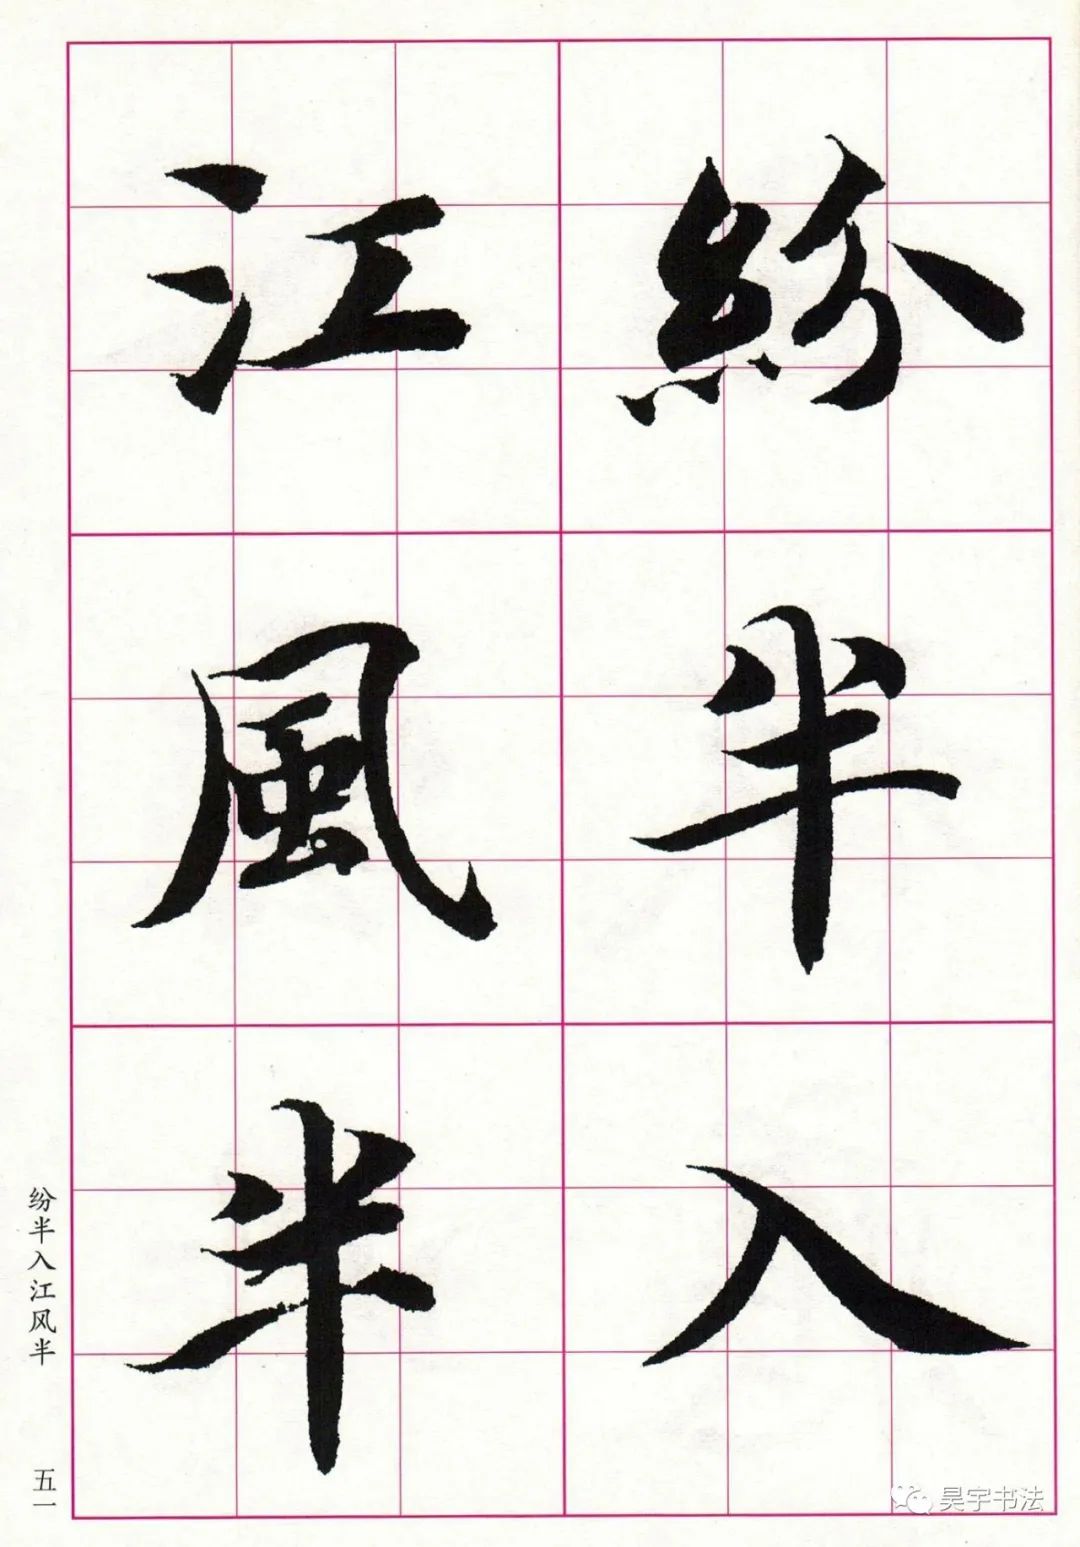 紛半入
江風半
纷半入江风半
五一
昊宇书法